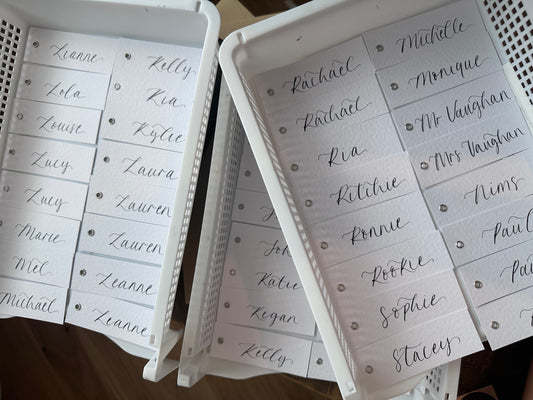 Lianne
Lola
Louise
Lucy
Lucy
Marie
Mel
Michael
Kelly
Kia
Kylie
Laura
Lauren
Lauren
Leanne
Leanne
Katie
Kegan
Kelly
Rachael
Rachael
Ria
Ritchie
Ronnie
Rookie
Sophie
Stacey
Michelle
Monique
Mr Vaughan
Mrs Vaughan
Nims